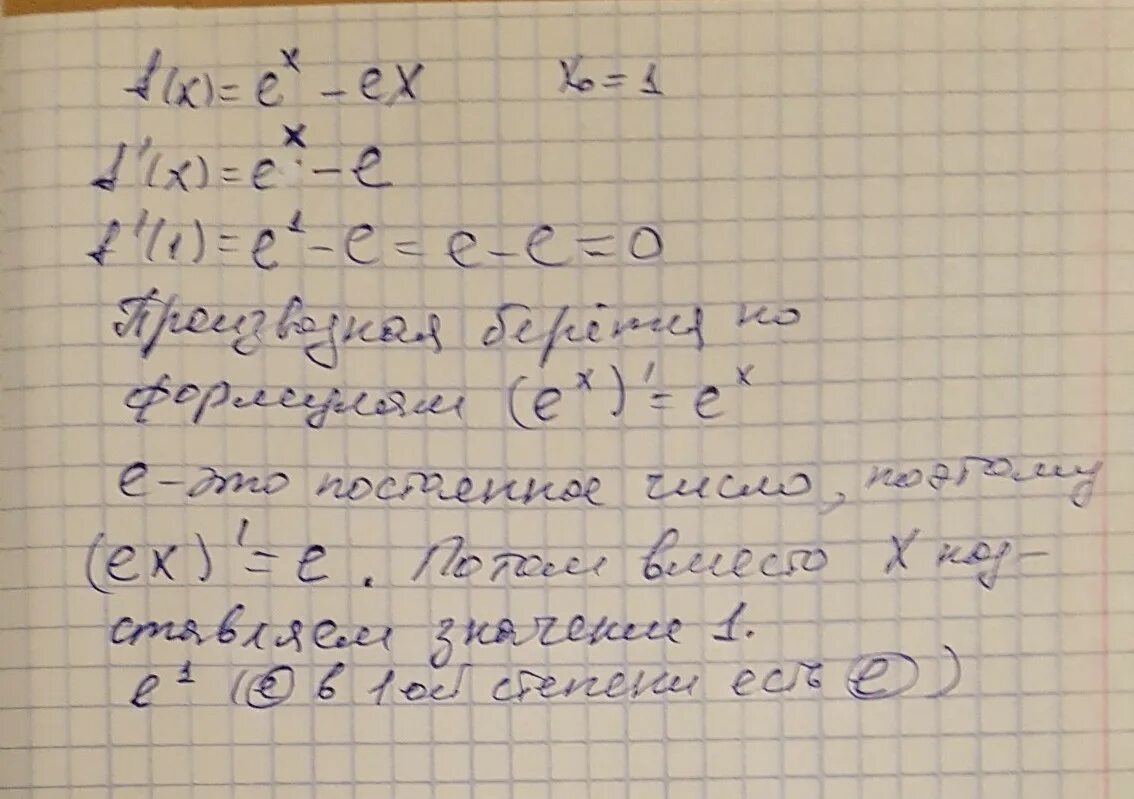 f(x) = e^x - ex    x₀ = 1
f'(x) = e^x - e
f'(1) = e^1 - e = e - e = 0
Производная берётся по
формулам (e^x)' = e^x
e - это постоянное число, поэтому
(ex)' = e. Потом вместо x под-
ставляем значение 1.
e^1 (e в 1ой степени есть e)